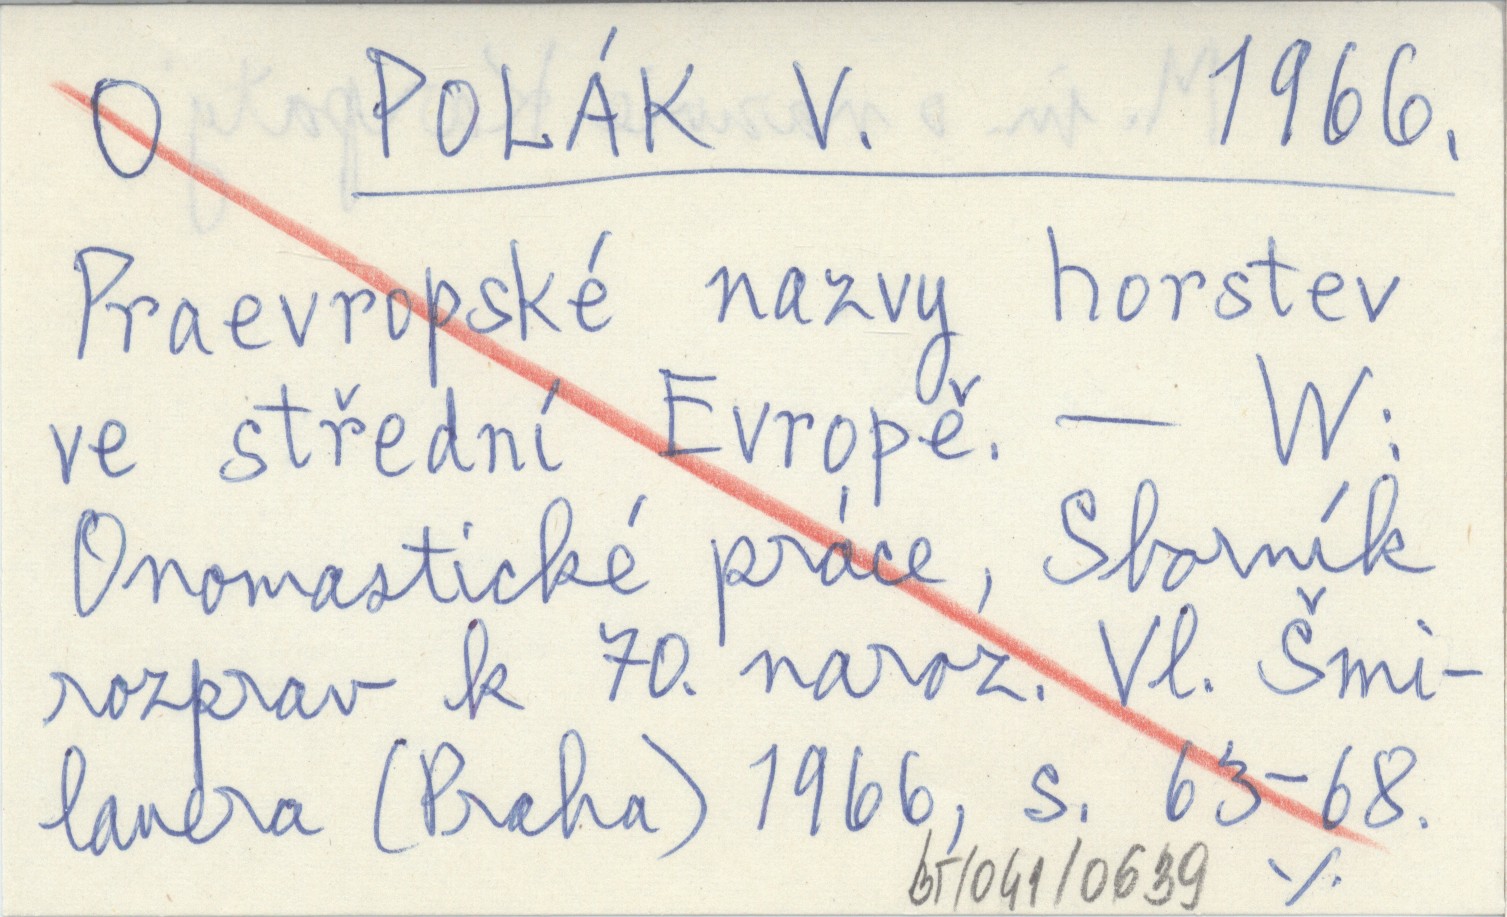 O POLÁK V. 1966.
Praevropské nazvy horstev
ve střední Evropě. — W:
Onomastické práce, Sborník
rozprav k 70. naroz. Vl. Šmi-
lauera (Praha) 1966, s. 63-68.
BT/041/0639 ./.